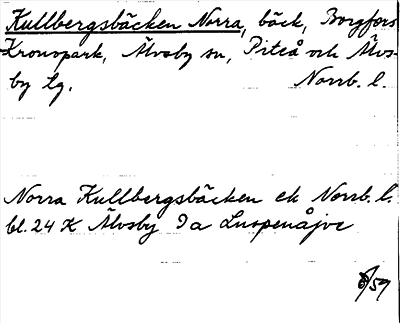 Kullbergsbäcken Norra, bäck, Borgfors
Kronopark, Älvsby sn, Piteå och Älvs-
by lg. Norrb. l.
Norra Kullbergsbäcken ek Norrb. l.
bl. 24 K Älvsby 9a Luspenåjve
8/59